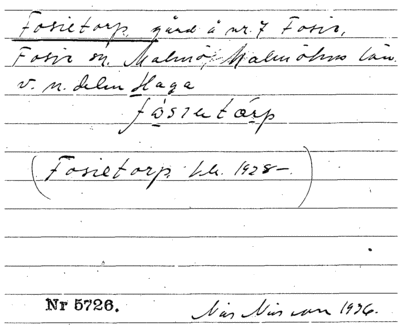 Fosietorp gård å nr. 7 Fosie,
Fosie sn, Malmö, Malmöhus län.
v. n. delen Haga
fòsɪetɑ́rp
(Fosietorp bl. 1928–.)
Nr 5726.
Nils Nilsson 1936.